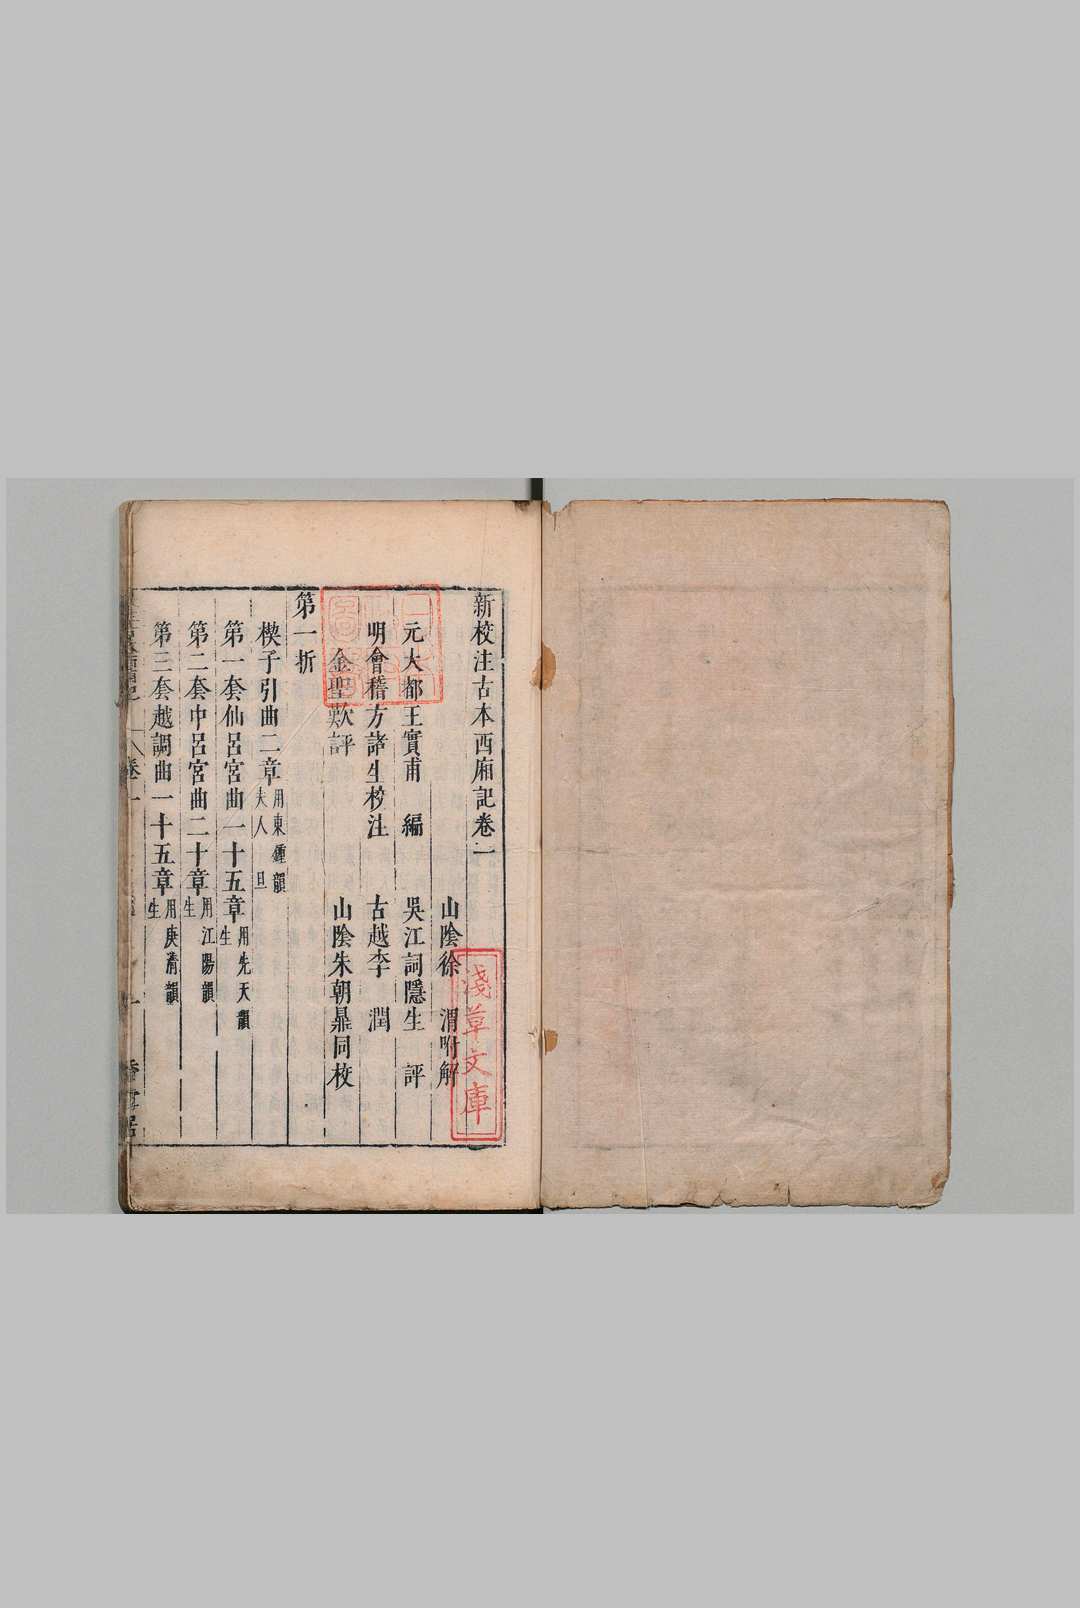 新校注古本西廂記卷一
山陰徐　渭附解
元大都王實甫　編　吳江詞隱生　評
明會稽方諸生校注　古越李　潤
金聖歎評　山陰朱朝鼎同校
第一折
楔子引曲二章用東鍾韻
夫人　旦
第一套仙呂宮曲一十五章用先天韻
生
第二套中呂宮曲二十章用江陽韻
生
第三套越調曲一十五章用庚清韻
生
卷一
一
香雪居
淺草文庫